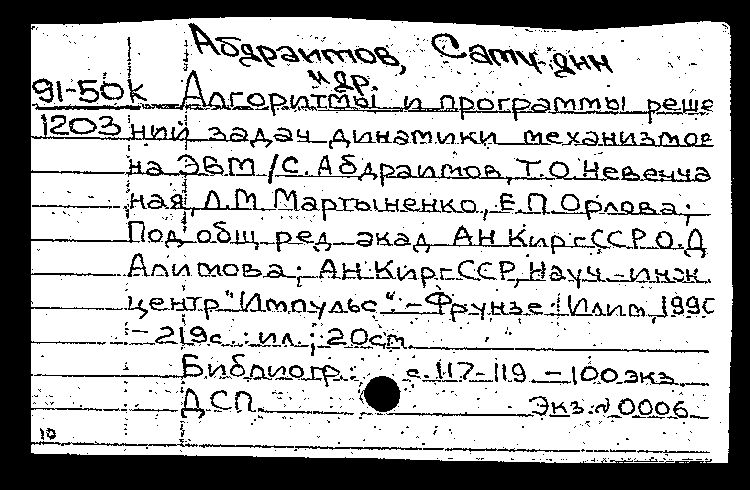 Абдраимов, Саму-дин
и др.
91-50к Алгоритмы и программы реше
1203 ний задач динамики механизмов
на ЭВМ /С. Абдраимов, Т.О.Невенча
ная, Л.М Мартыненко, Е.П.Орлова;
Под общ ред. акад АН КиргССР О.Д
Алимова; АН КиргССР, Науч.-инж.
центр "Импульс". - Фрунзе: Илим, 1990
- 219с. : ил ; 20см.
Библиогр.: с.117-119. - 100экз
ДСП. Экз.№0006
10